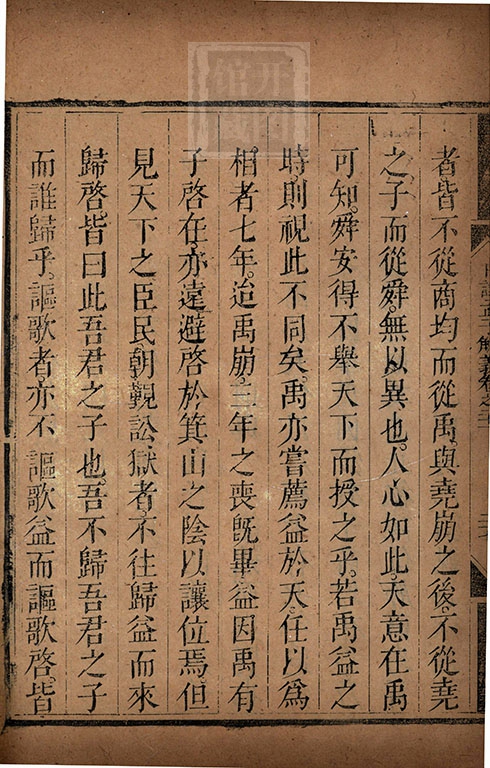 者皆不從商均而從禹。與堯崩之後。不從堯
之子而從舜。無以異也。人心如此。天意在禹
可知。舜安得不舉天下而授之乎。若禹益之
時。則視此不同矣。禹亦嘗薦益於天。任以為
相者七年。迨禹崩。三年之喪既畢。益因禹有
子啓在。亦遠避啓於箕山之陰以讓位焉。但
見天下之臣民朝覲訟獄者。不往歸益而來
歸啓。皆曰此吾君之子也。吾不歸吾君之子
而誰歸乎。謳歌者亦不謳歌益而謳歌啓。皆